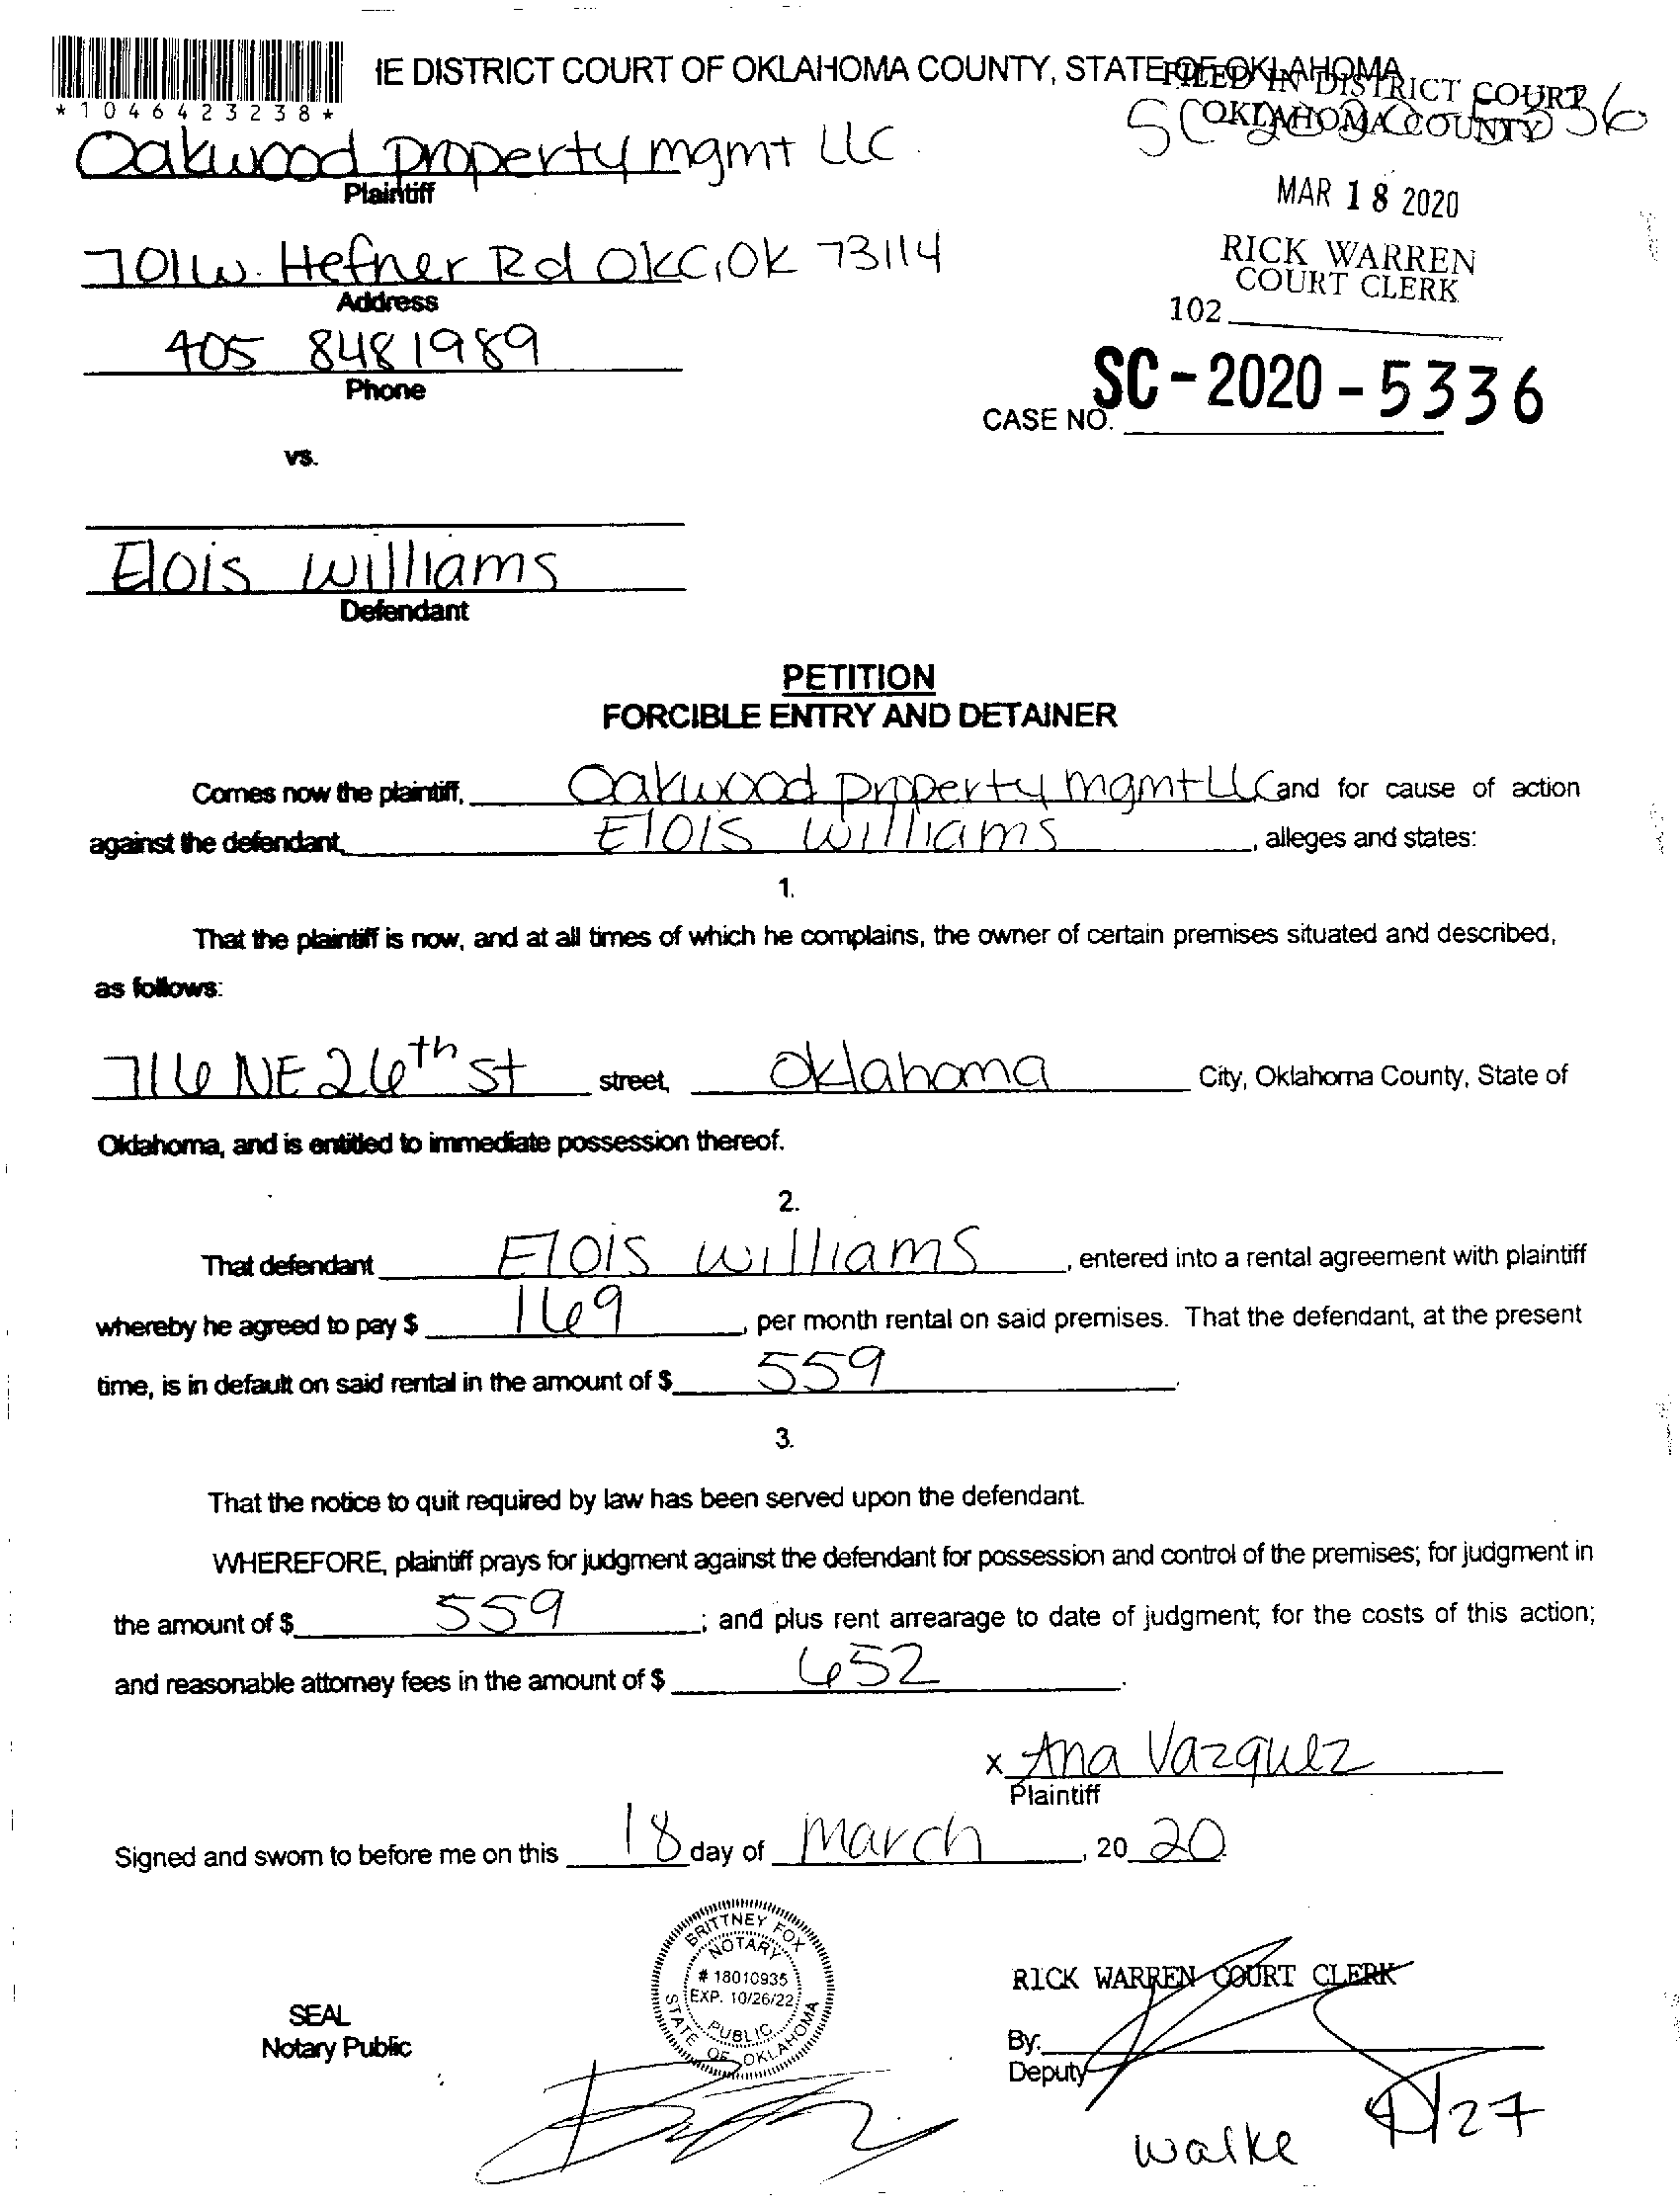 IE DISTRICT COURT OF OKLAHOMA COUNTY, STATE OF OKLAHOMA
FILED IN DISTRICT COURT
OKLAHOMA COUNTY
*1046423238*
Oakwood property mgmt LLC
Plaintiff
MAR 18 2020
701 W. Hefner Rd OKC, OK 73114
RICK WARREN
COURT CLERK
Address
102
405 848 1989
Phone
CASE NO. SC-2020-5336
vs.
Elois Williams
Defendant
PETITION
FORCIBLE ENTRY AND DETAINER
Comes now the plaintiff, Oakwood property mgmt LLC and for cause of action
against the defendant, Elois Williams, alleges and states:
1.
That the plaintiff is now, and at all times of which he complains, the owner of certain premises situated and described,
as follows:
716 NE 26th St street, Oklahoma City, Oklahoma County, State of
Oklahoma, and is entitled to immediate possession thereof.
2.
That defendant Elois Williams, entered into a rental agreement with plaintiff
whereby he agreed to pay $ 169, per month rental on said premises. That the defendant, at the present
time, is in default on said rental in the amount of $ 559.
3.
That the notice to quit required by law has been served upon the defendant.
WHEREFORE, plaintiff prays for judgment against the defendant for possession and control of the premises; for judgment in
the amount of $ 559; and plus rent arrearage to date of judgment; for the costs of this action;
and reasonable attorney fees in the amount of $ 652.
x Ana Vazquez
Plaintiff
Signed and sworn to before me on this 18 day of March, 20 20
BRITTNEY FOX
NOTARY
# 18010935
EXP. 10/26/22
PUBLIC
STATE OF OKLAHOMA
RICK WARREN COURT CLERK
SEAL
Notary Public
By:
Deputy
walke